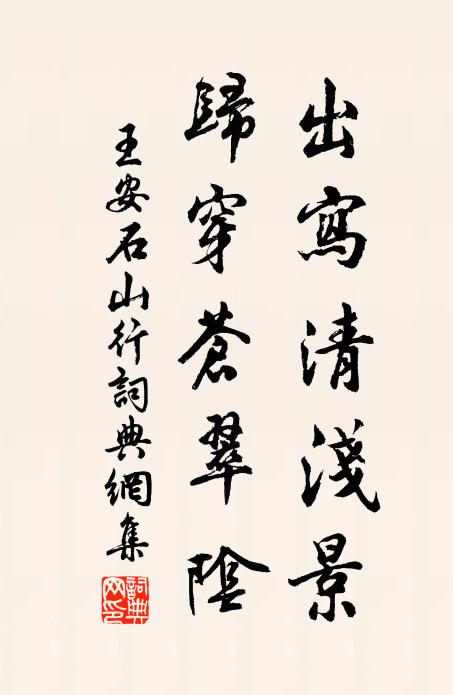 出寫清淺景
歸穿蒼翠陰
王安石山行詞典網集
詞典網印